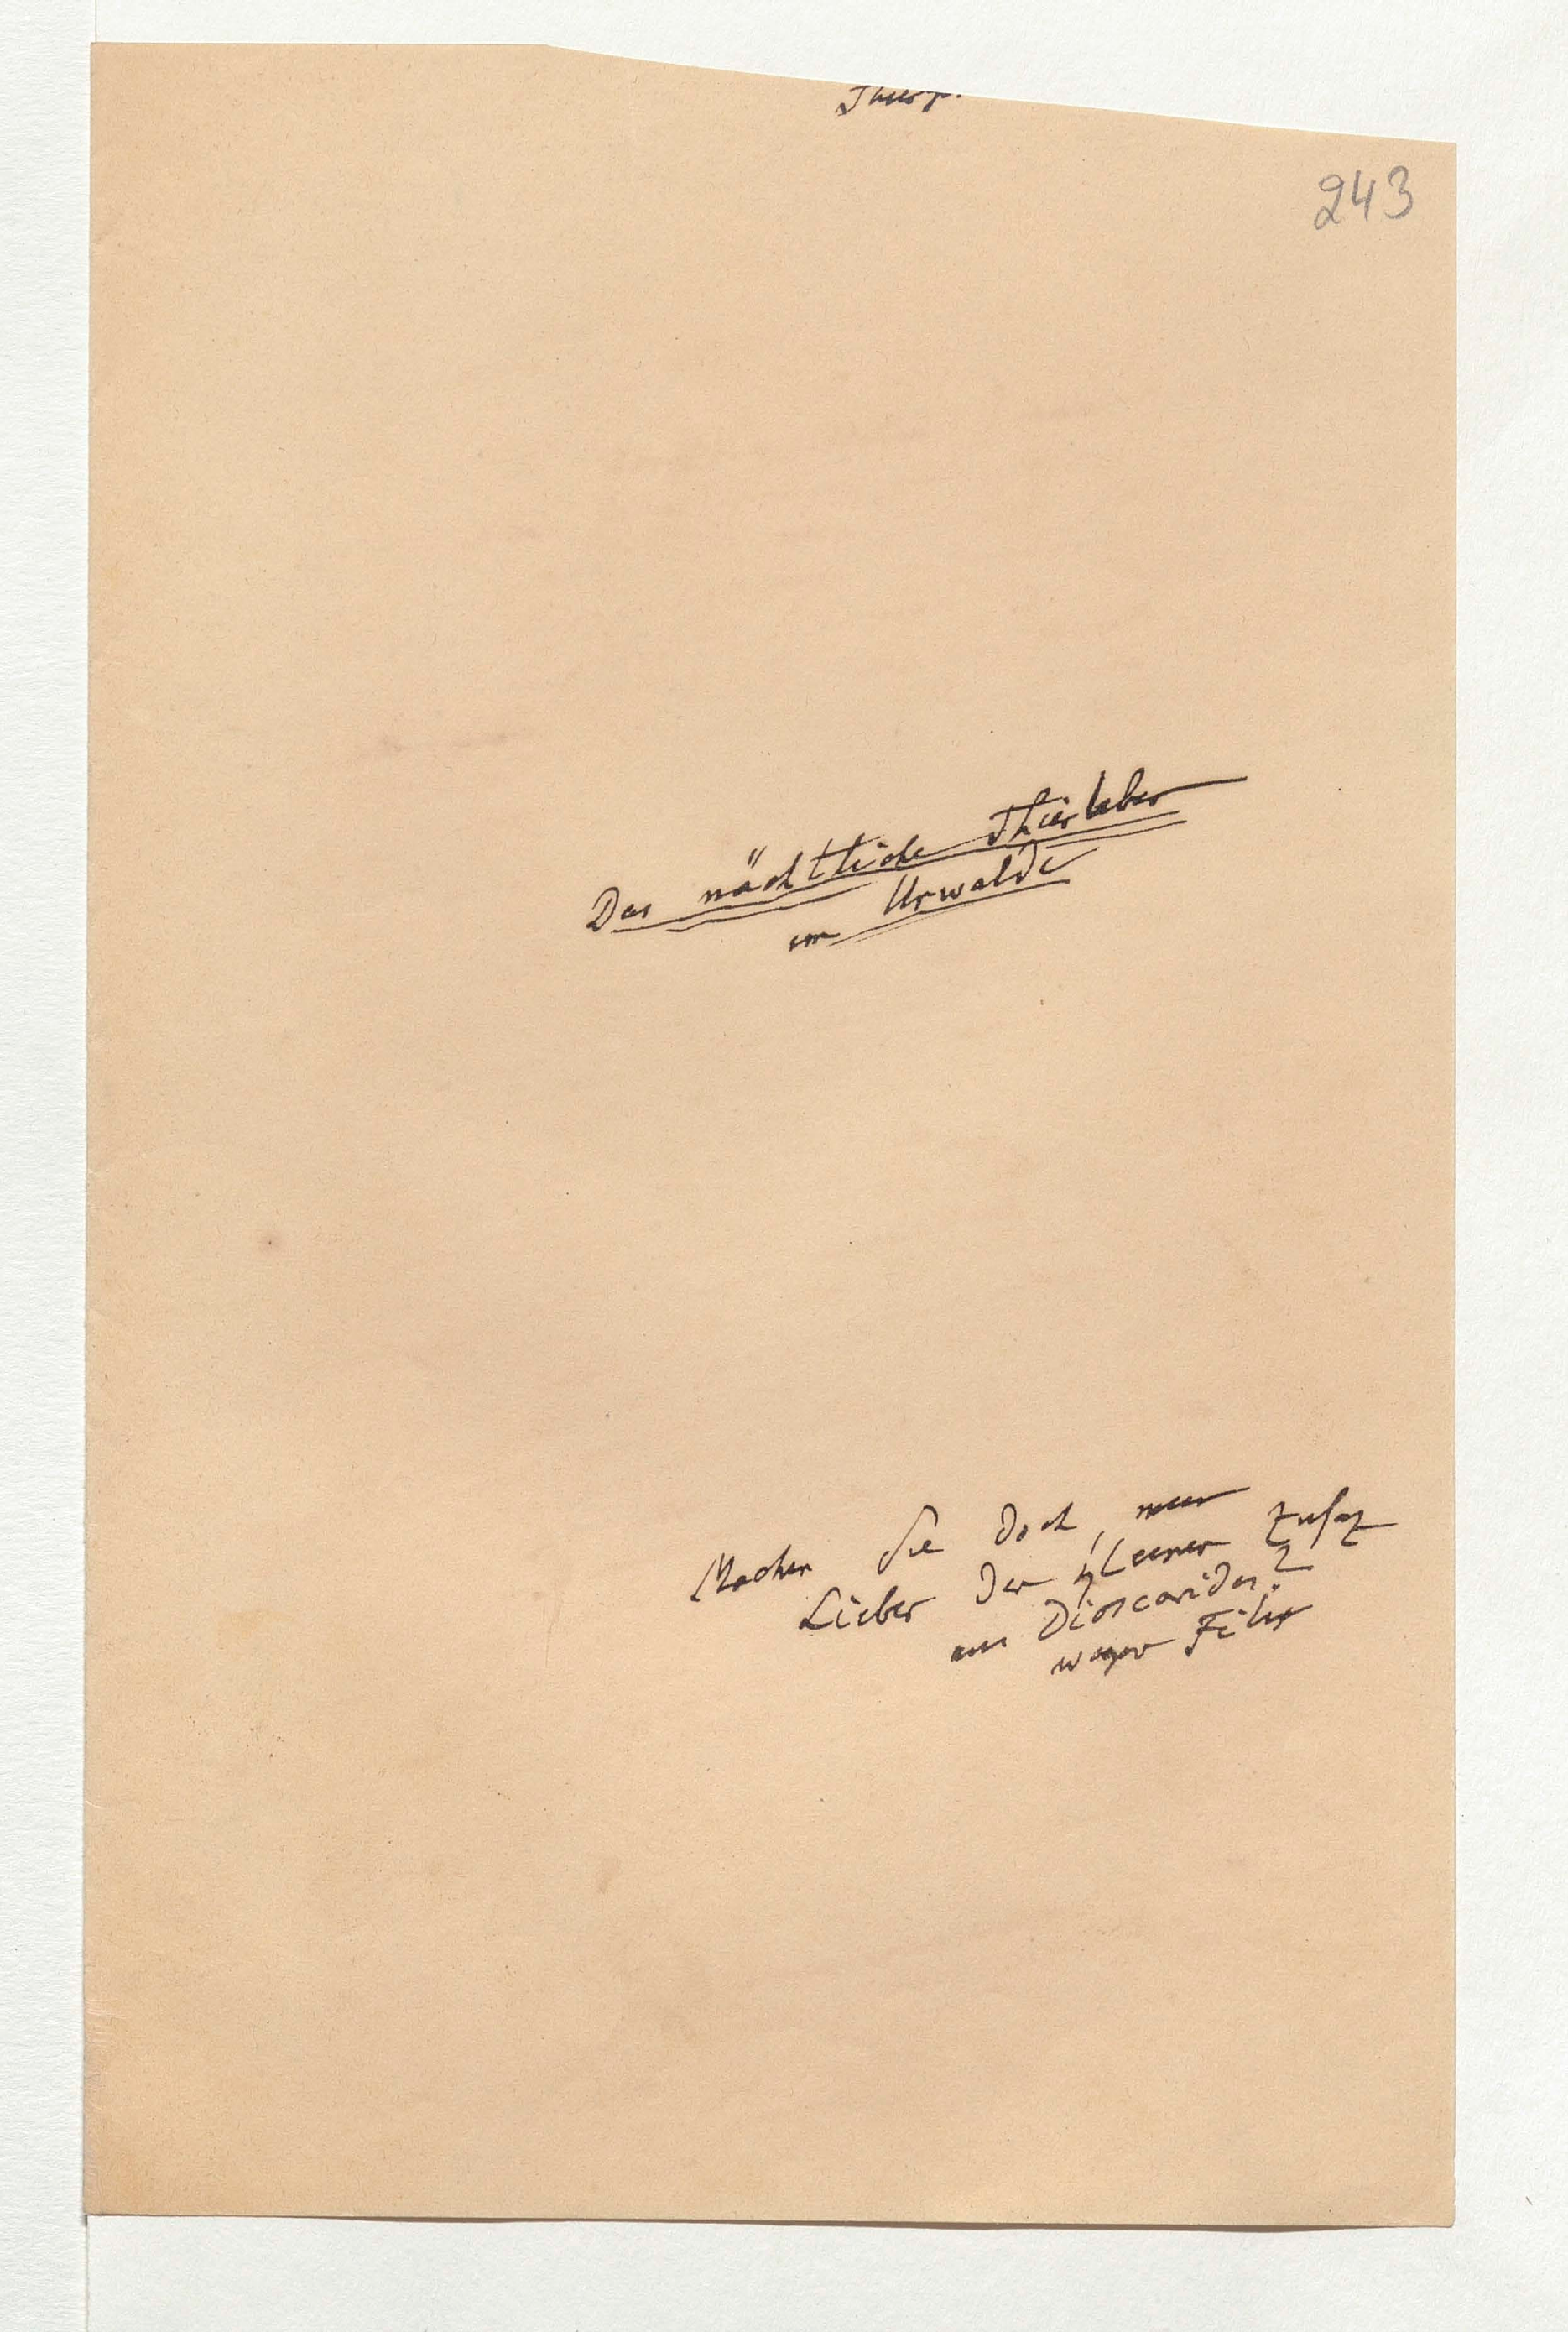 243
Das nächtliche Thierleben
im Urwalde
Machen Sie doch, mein
Lieber den kleinen Zusaz
aus Dioscorides?
wegen Filix